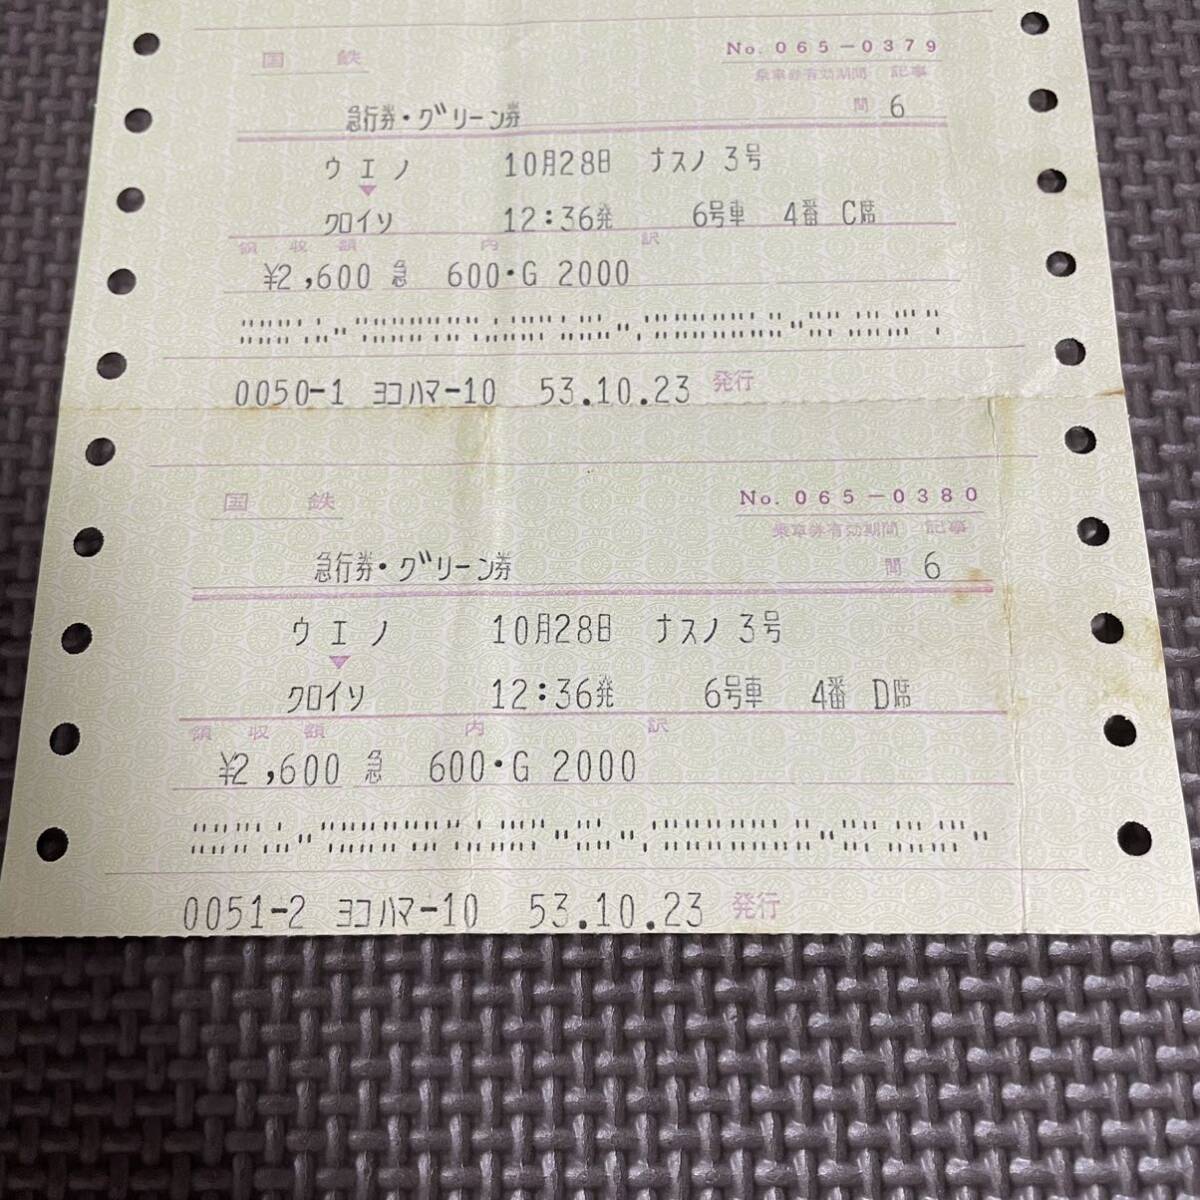 国鉄 No. 065-0379
乗車券有効期間 記事
急行券・グリーン券 間 6
ウエノ 10月28日 ナスノ 3号
▼
クロイソ 12:36発 6号車 4番 C席
領収額 内訳
¥2,600 急 600・G 2000
0050-1 ヨコハマ-10 53.10.23 発行
国鉄 No. 065-0380
乗車券有効期間 記事
急行券・グリーン券 間 6
ウエノ 10月28日 ナスノ 3号
▼
クロイソ 12:36発 6号車 4番 D席
領収額 内訳
¥2,600 急 600・G 2000
0051-2 ヨコハマ-10 53.10.23 発行